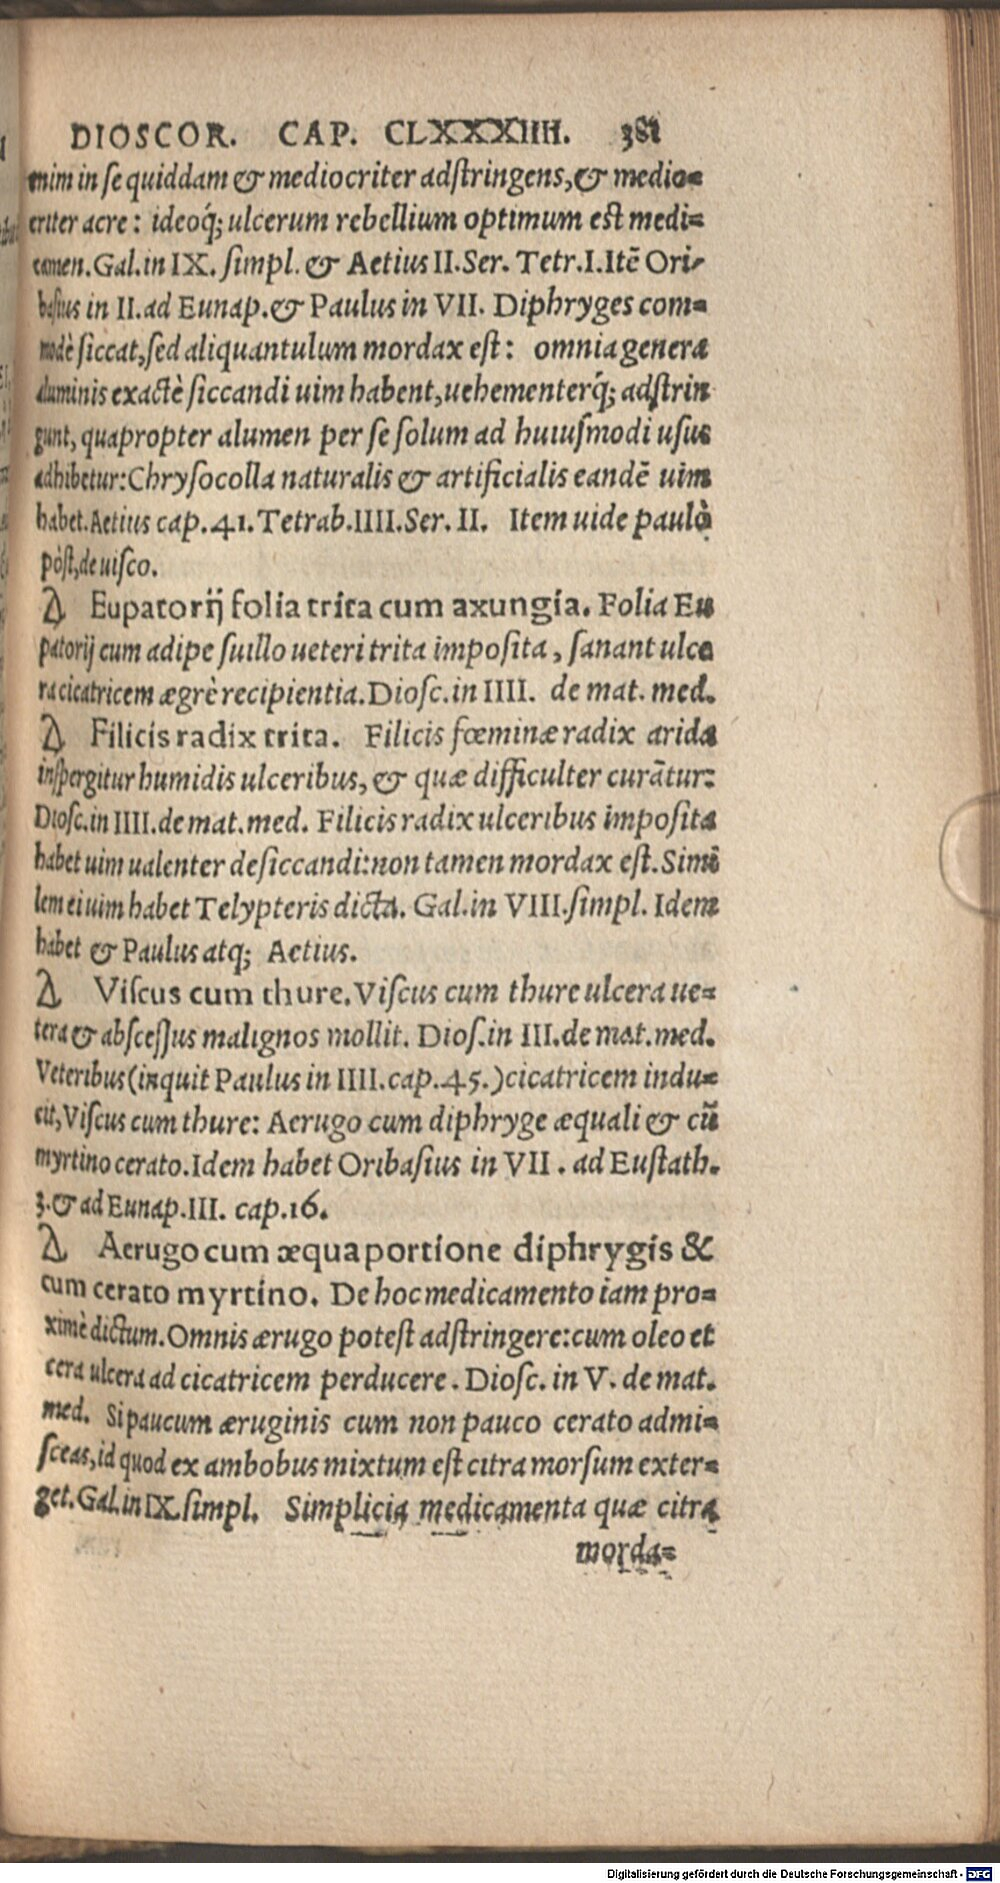 DIOSCOR. CAP. CLXXXIIII. 381
enim in se quiddam & mediocriter adstringens, & medio=
criter acre: ideoq́; ulcerum rebellium optimum est medi=
camen. Gal. in IX. simpl. & Aetius II. Ser. Tetr. I. Itē Ori-
basius in II. ad Eunap. & Paulus in VII. Diphryges com=
modè siccat, sed aliquantulum mordax est: omnia genera
aluminis exactè siccandi uim habent, uehementerq́; adstrin
gunt, quapropter alumen per se solum ad huiusmodi usus
adhibetur: Chrysocolla naturalis & artificialis eandē uim
habet. Aetius cap. 41. Tetrab. IIII. Ser. II. Item uide paulò
pòst, de uisco.
Δ Eupatorij folia trita cum axungia. Folia Eu
patorij cum adipe suillo ueteri trita imposita, sanant ulce
ra cicatricem ægrè recipientia. Diosc. in IIII. de mat. med.
Δ Filicis radix trita. Filicis fœminæ radix arida
inspergitur humidis ulceribus, & quæ difficulter curātur:
Diosc. in IIII. de mat. med. Filicis radix ulceribus imposita
habet uim ualenter desiccandi: non tamen mordax est. Simi
lem ei uim habet Telypteris dicta. Gal. in VIII. simpl. Idem
habet & Paulus atq; Aetius.
Δ Viscus cum thure. Viscus cum thure ulcera ue=
tera & abscessus malignos mollit. Dios. in III. de mat. med.
Veteribus (inquit Paulus in IIII. cap. 45.) cicatricem indu=
cit, Viscus cum thure: Aerugo cum diphryge æquali & cū
myrtino cerato. Idem habet Oribasius in VII. ad Eustath.
3. & ad Eunap. III. cap. 16.
Δ Aerugo cum æqua portione diphrygis &
cum cerato myrtino. De hoc medicamento iam pro=
ximè dictum. Omnis ærugo potest adstringere: cum oleo et
cera ulcera ad cicatricem perducere. Diosc. in V. de mat.
med. Si paucum æruginis cum non pauco cerato admi=
sceas, id quod ex ambobus mixtum est citra morsum exter=
get. Gal. in IX. simpl. Simplicia medicamenta quæ citra
morda=
Digitalisierung gefördert durch die Deutsche Forschungsgemeinschaft - DFG